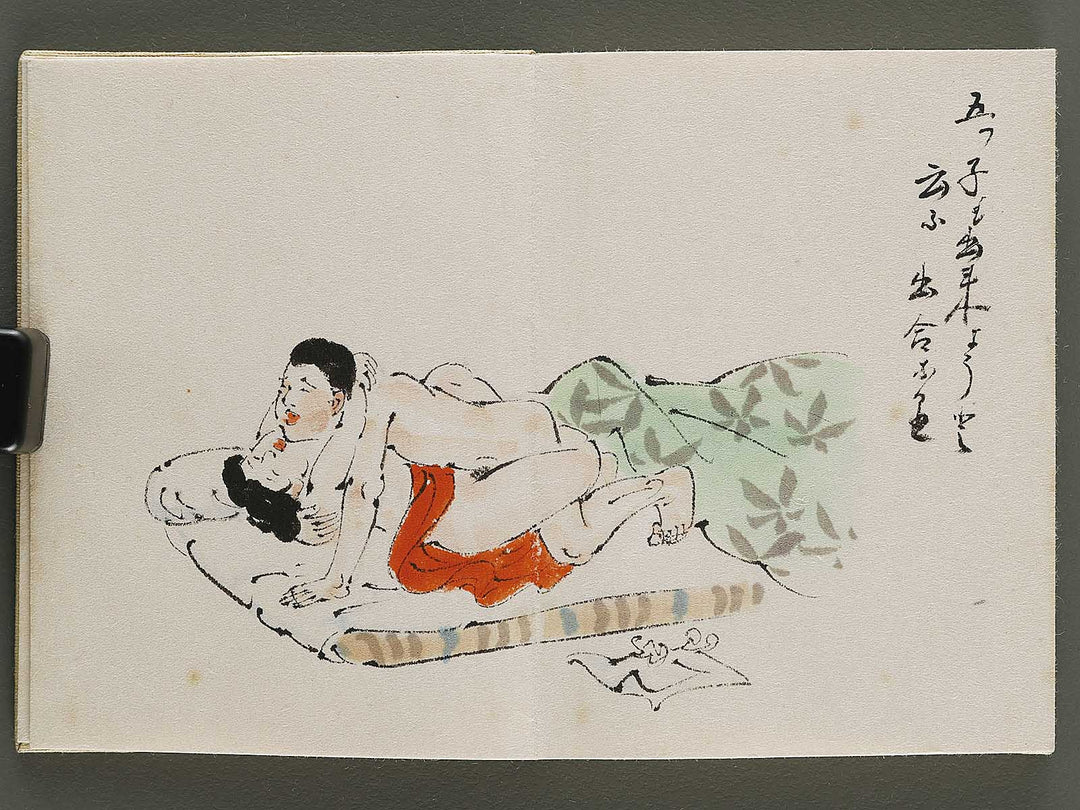 五つ子も出来ようと
云ふ出合茶屋